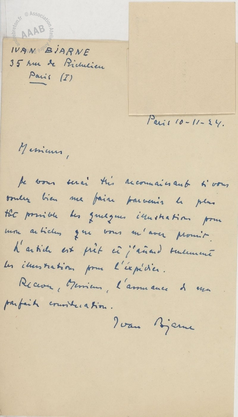 AAAB
IVAN BJARNE
35 rue de Richelieu
Paris (I)
Paris 10-11-24.
Messieurs,
Je vous serai très reconnaissant si vous
voulez bien me faire parvenir le plus
tôt possible les quelques illustrations pour
mon article que vous m'avez promis.
L'article est prêt et j'attend seulement
les illustrations pour l'expédier.
Recevez, Messieurs, l'assurance de ma
parfaite considération.
Ivan Bjarne